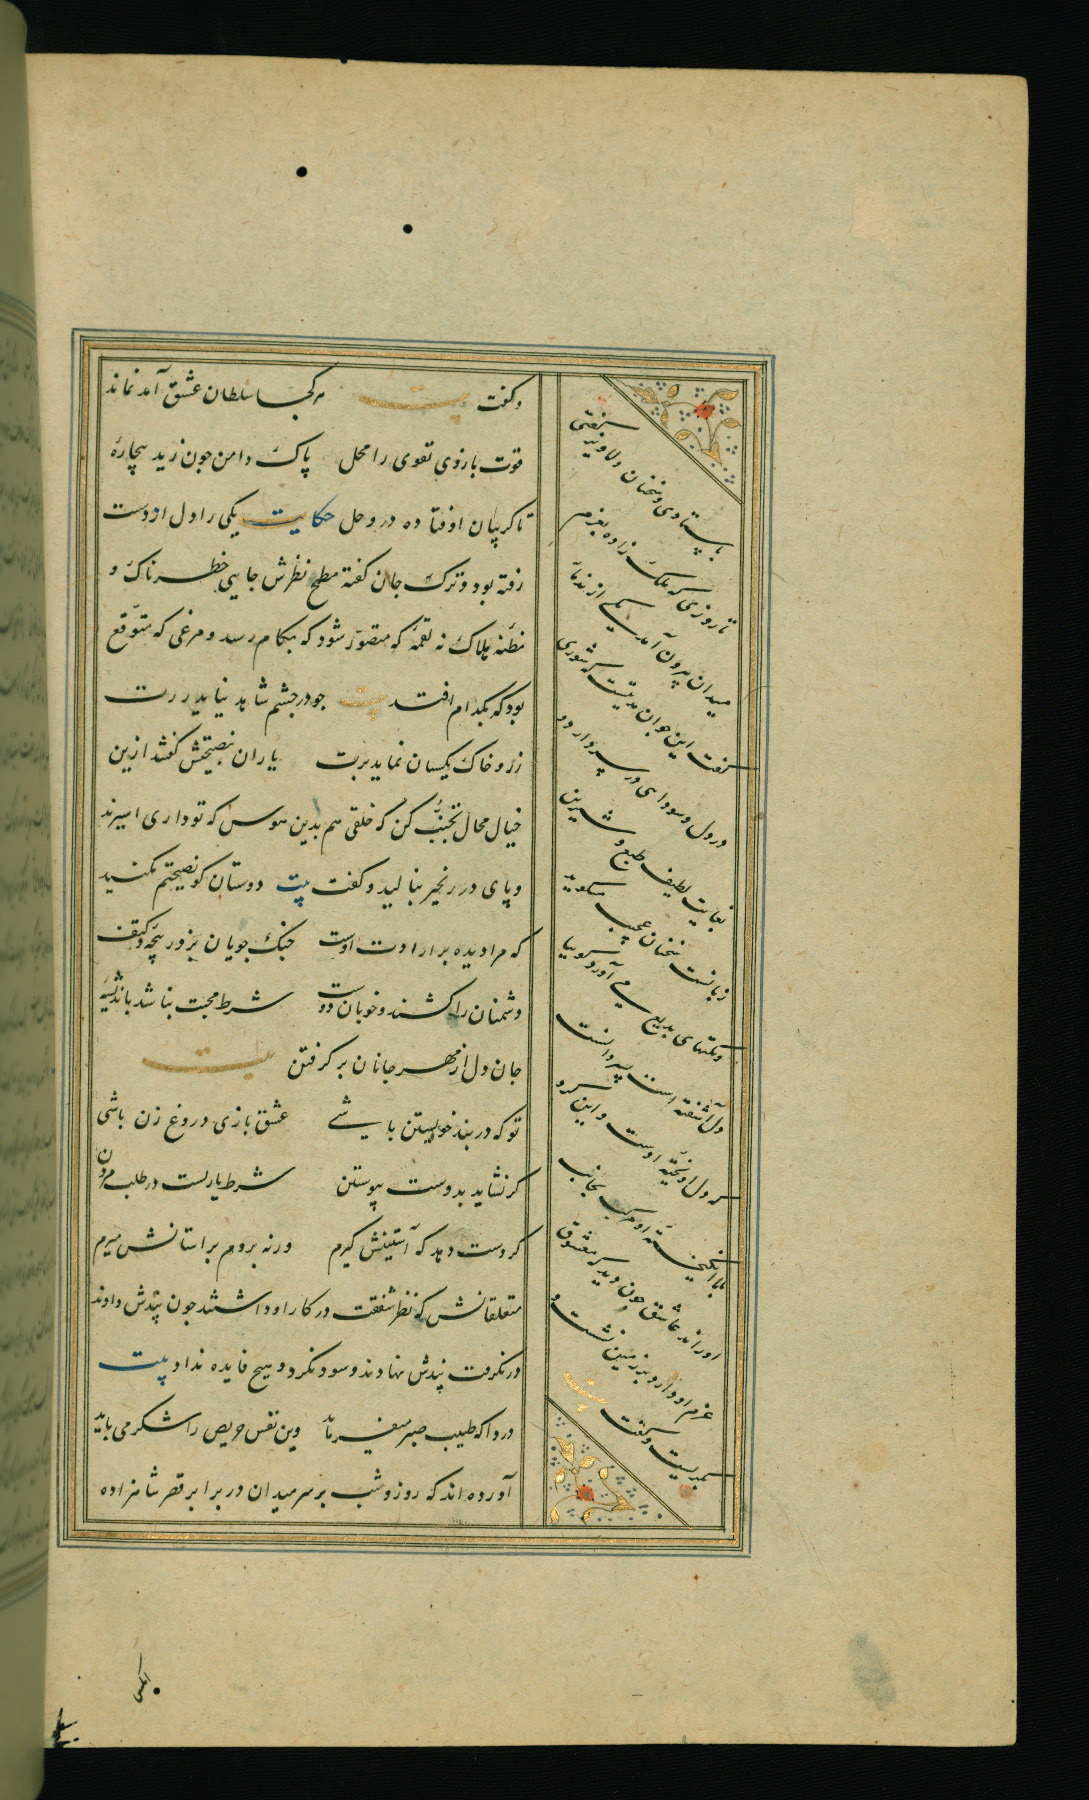 وگفت بیت هر کجا سلطان عشق آمد نماند
قوت بازوی تقوی را محل پاک دامن چون زید بیچارهٔ
تا گریبان اوفتاده در وحل حکایت یکی را دل از دست
رفته بود و ترک جان گفته مطمح نظرش جایی خطرناک و
مظنه هلاک نه لقمهٔ که متصور شود که بکام رسد و مرغی که متوقع
بود که بدام افتد بیت چو در چشم شاهد نیاید زرت
زر و خاک یکسان نماید برت یاران بنصیحتش گفتند ازین
خیال محال تجنب کن که خلقی هم بدین هوس که تو داری اسیرند
و پای در زنجیر بنالید و گفت بیت دوستان گو نصیحتم مکنید
که مرا دیده بر ارادت اوست جنگ جویان بزور پنجه و کتف
دشمنان را کشند و خوبان دوست شرط محبت نباشد باندیشهٔ
جان دل از مهر جانان برگرفتن بیت
تو که در بند خویشتن باشی عشق بازی دروغ زن باشی
گر نشاید بدوست پیوستن شرط یاریست در طلب مردن
گر دست دهد که آستینش گیرم ورنه بروم بر استانش میرم
متعلقانش که نظر شفقت در کار او داشتند چون پندش دادند
در نگرفت بندش نهادند و سود نکرد و هیچ فایده نداد بیت
دردا که طبیب صبر میفرماید وین نفس حریص را شکر می باید
آورده اند که روز و شب بر سر میدان در برابر قصر شاهزاده
بایستادی و سخنان دلاویز گفتی
تا روزی که ملک زاده بعزم
میدان بیرون آمد یکی از ندما
گفت این جوان مدتیست که شوری
در دل و سودای در سر دارد و
بغایت لطیف طبع و شیرین
زبانست سخنان عجیب میگوید
و نکتهای بدیع می آورد گوییا
دل آشفته است پسر دانست
که دل آویخته اوست و این گرد
بلا انگیخته او مرکب بجانب
او راند عاشق چون دید که معشوق
عزم او دارد بر زمین نشست و
بگریست و گفت بیت
آنکس